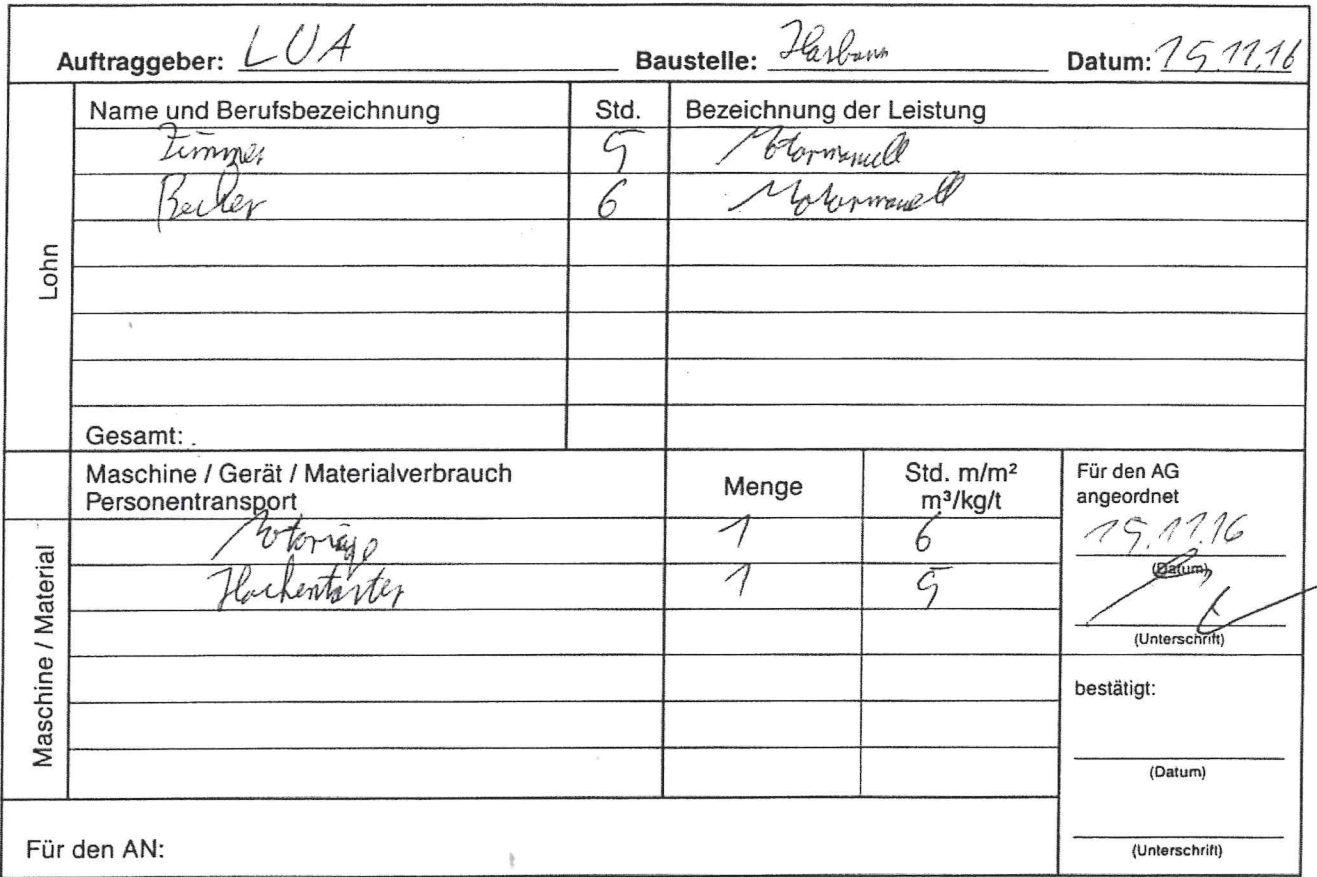 Auftraggeber: LUA Baustelle: Datum: 15.11.16
Lohn
Name und Berufsbezeichnung Std. Bezeichnung der Leistung
Zimmer 5 Motormanuell
Becker 6 Motormanuell
Gesamt:
Maschine / Material
Maschine / Gerät / Materialverbrauch Personentransport Menge Std. m/m² m³/kg/t
Motorsäge 1 6
Hochentaster 1 5
Für den AG
angeordnet
15.11.16
(Datum)
(Unterschrift)
bestätigt:
(Datum)
(Unterschrift)
Für den AN: